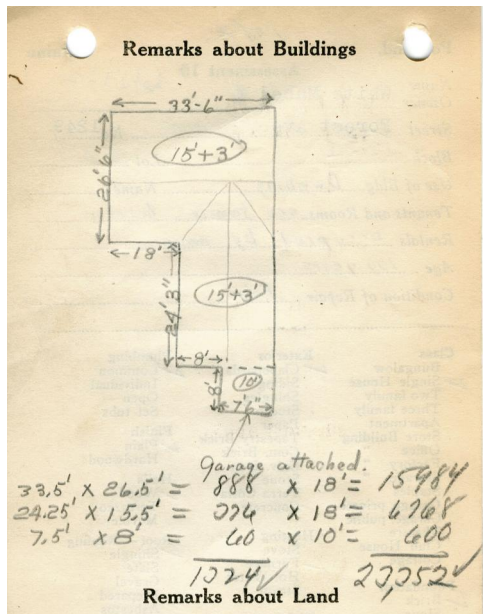 Remarks about Buildings
33'-6"
15'+3'
26'6"
18'
15'+3'
24'3"
8'
8'
10'
7'6"
Garage attached.
33.5' X 26.5' = 888 X 18' = 15984
24.25' X 15.5' = 376 X 18' = 6768
7.5' X 8' = 60 X 10' = 600
1324 23,352
Remarks about Land